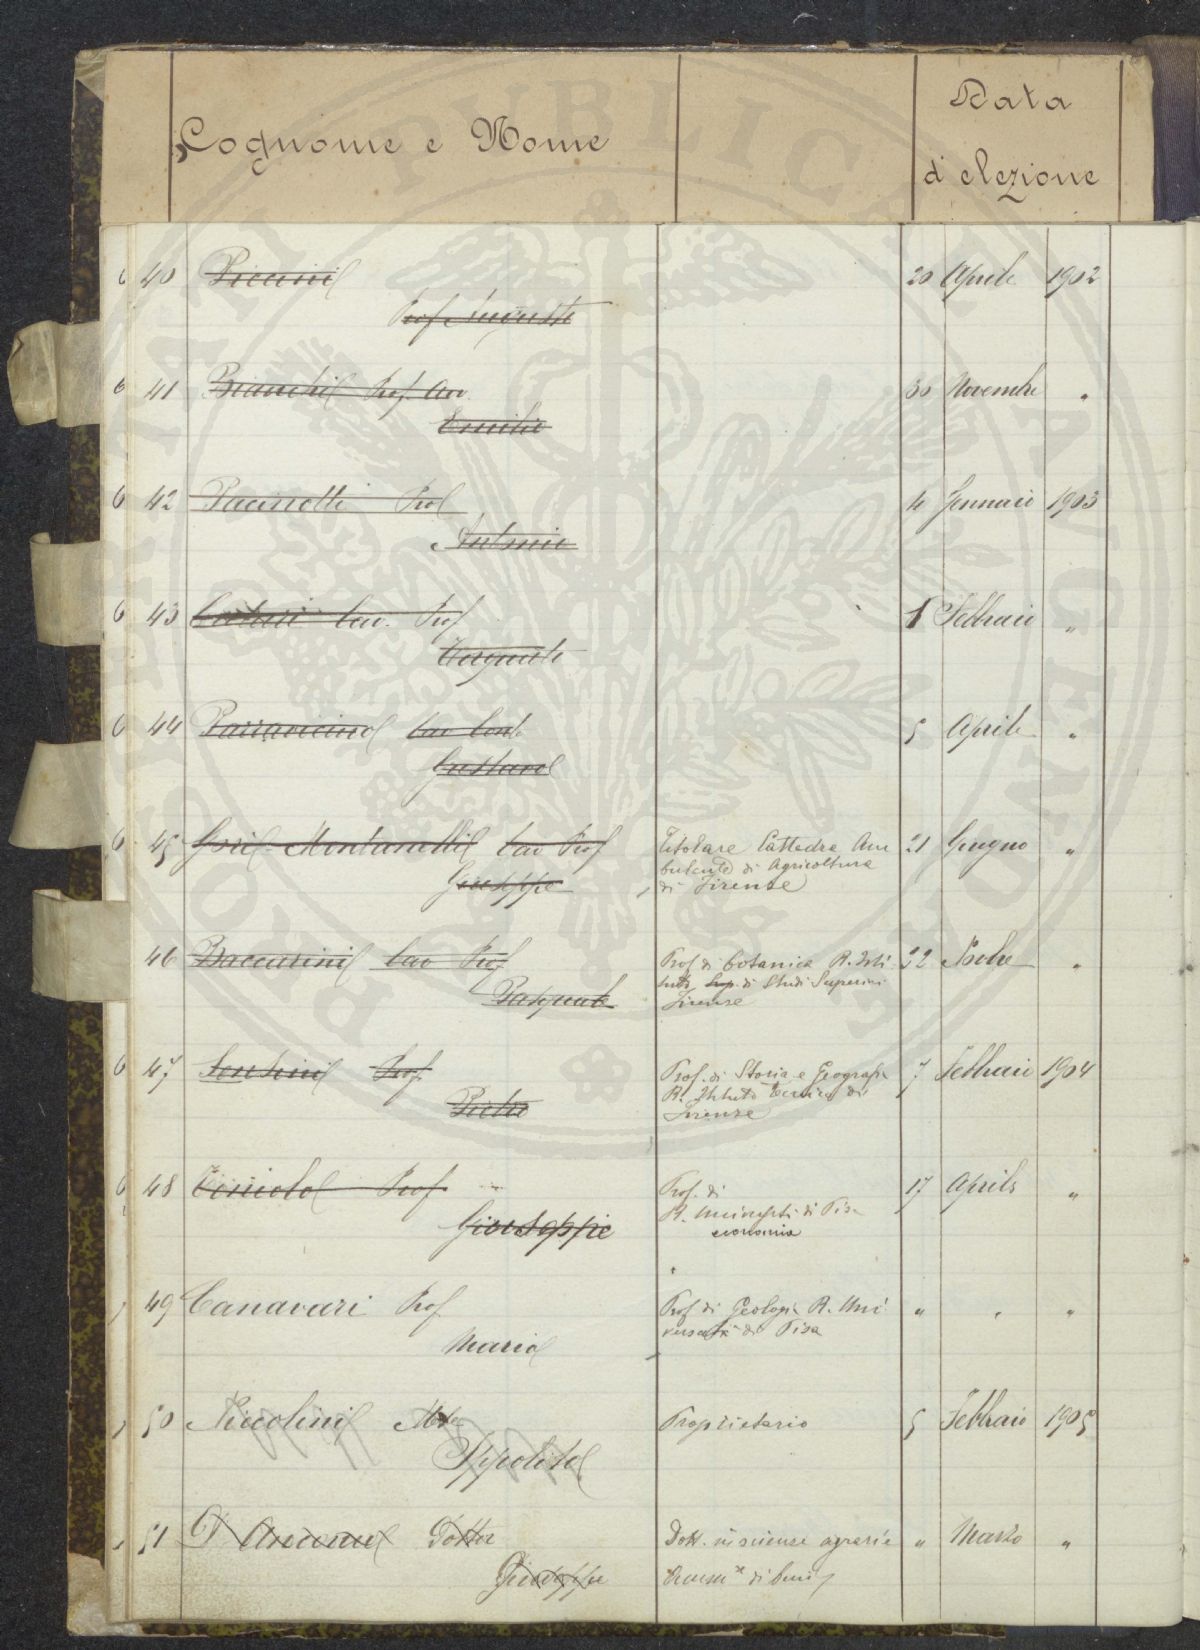 Cognome e Nome
Data
d'elezione
6 40 Piccini 20 Aprile 1902
Prof Augusto
6 41 Bianchi Prof. Avv. 30 Novembre "
Emilio
6 42 Pacinotti Prof 4 Gennaio 1903
Antonio
6 43 Cav. Prof 1 Febbraio "
Torquato
6 44 Parravicino Cav Conte 5 Aprile "
Gustavo
6 45 Gori-Montanelli Cav Prof Titolare Cattedra Am 21 Giugno "
bulante di Agricoltura
Giuseppe di Firenze
46 Baccarini Cav Prof Prof di botanica R. Isti 22 "
tuto Sup. di Studi Superiori
Pasquale Firenze
6 47 Sensini Prof. Prof. di Storia e Geografia 7 Febbraio 1904
R. Istituto Tecnico di
Pietro Firenze
6 48 Toniolo Prof Prof. di 17 Aprile "
R. Università di Pisa
Giuseppe economia
49 Canavari Prof Prof di Geologia R. Uni " " "
Mario versità di Pisa
50 Niccolini Proprietario 5 Febbraio 1905
Ippolito
51 D'Ancona Dottor Dott. in scienze agrarie " Marzo "
Giuseppe
PUBLICAE FELICITATI
PROSPERITATI AUGENDAE